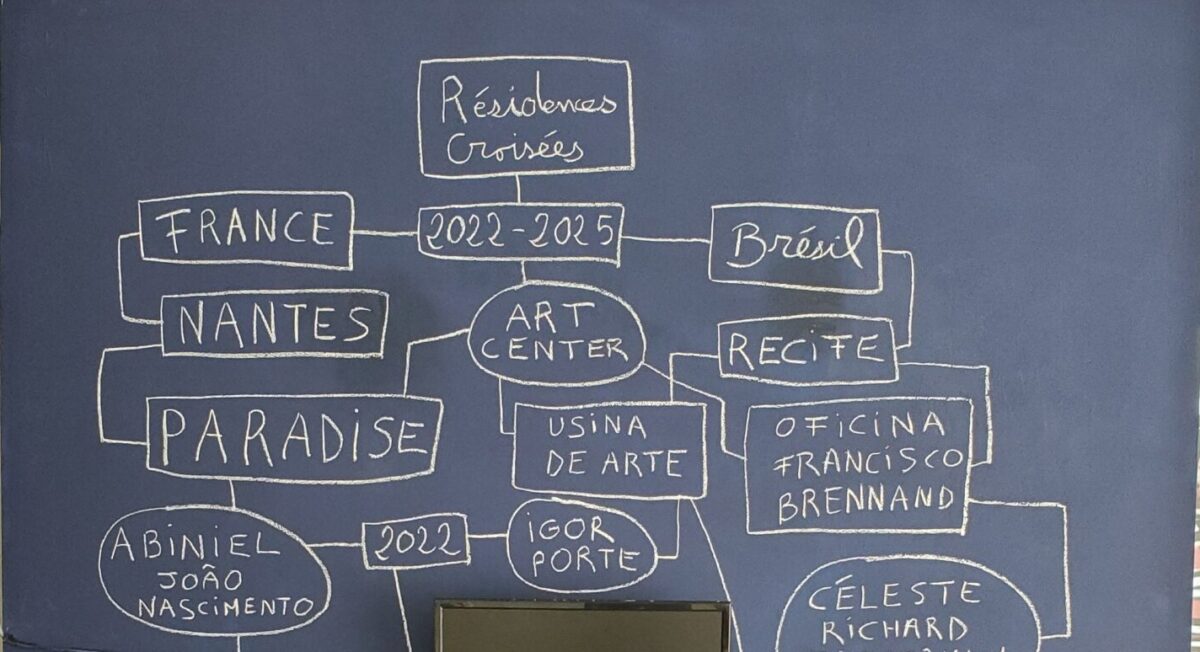 Résidences
Croisées
FRANCE
2022-2025
Brésil
NANTES
ART
CENTER
RECIFE
PARADISE
USINA
DE ARTE
OFICINA
FRANCISCO
BRENNAND
ABINIEL
JOÃO
NASCIMENTO
2022
IGOR
PORTE
CÉLESTE
RICHARD